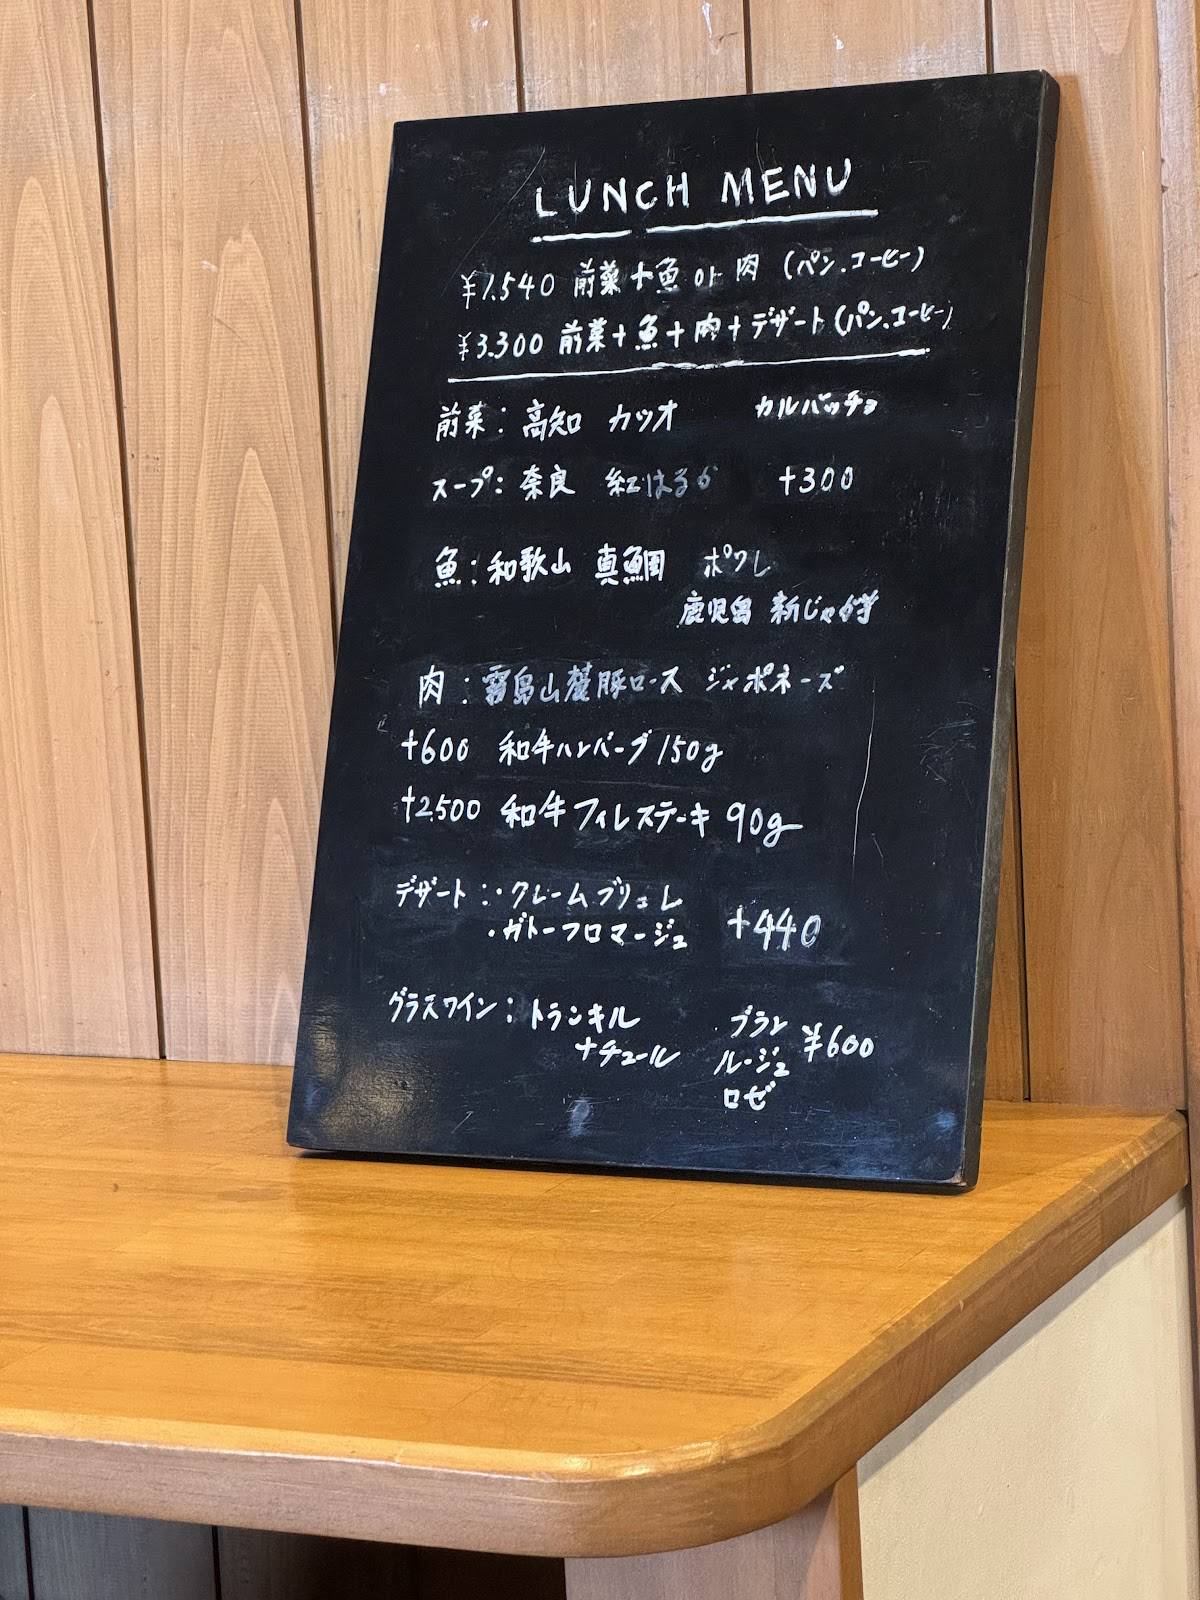 LUNCH MENU
¥1.540 前菜+魚 or 肉 (パン.コーヒー)
¥3.300 前菜+魚+肉+デザート(パン.コーヒー)
前菜: 高知 カツオ カルパッチョ
スープ: 奈良 紅はるか +300
魚: 和歌山 真鯛 ポワレ
鹿児島 新じゃが芋
肉: 霧島山麓豚ロース ジャポネーズ
+600 和牛ハンバーグ 150g
+2.500 和牛フィレステーキ 90g
デザート: ・クレームブリュレ
・ガトーフロマージュ +440
グラスワイン: トランキル ブラン
ナチュール ルージュ ¥600
ロゼ